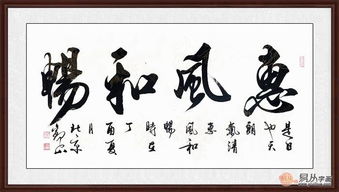 惠風和暢
是日
也天
朗
氣清
惠
風和
暢
時在
丁
酉夏
月
於北京
易从字画